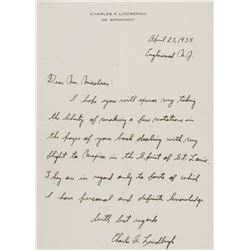 CHARLES A. LINDBERGH
25 BROADWAY
April 23, 1935
Englewood N.J.
Dear Mr. Nicolson:
I hope you will excuse my taking
the liberty of making a few notations on
the pages of your book dealing with my
flight to Mexico in the Spirit of St. Louis.
They are in regard only to facts of which
I have personal and definite knowledge
With best regards
Charles A. Lindbergh